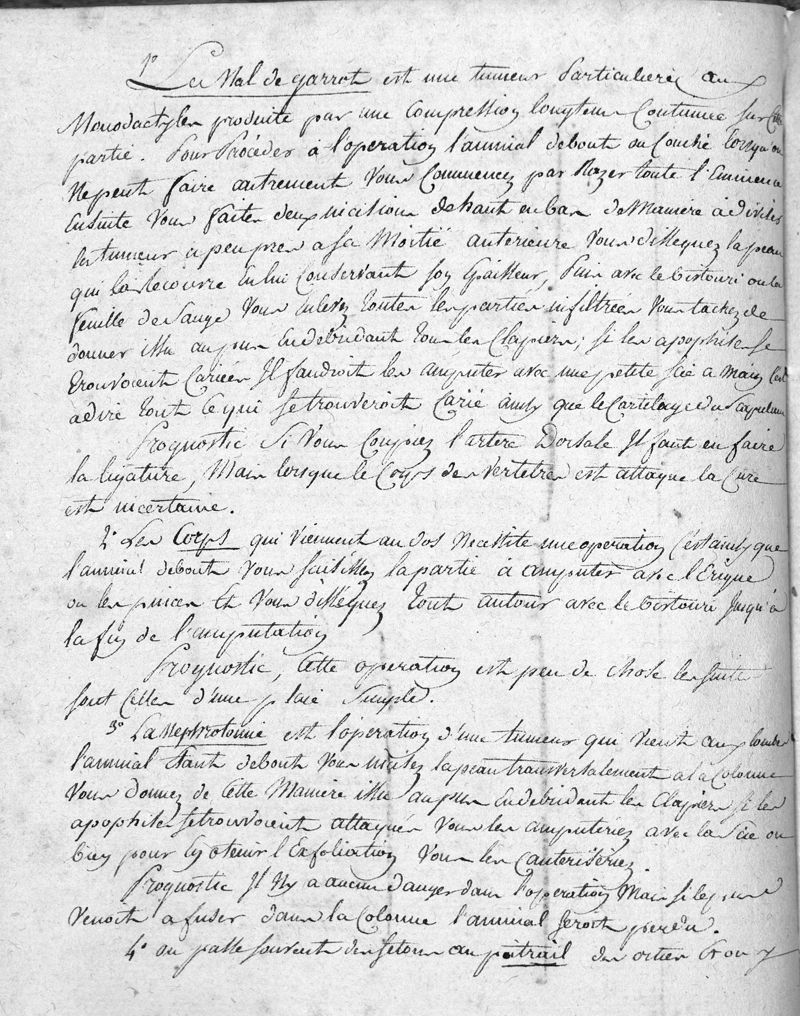 1° Le Mal de garrot est une tumeur Particuliere aux
Monodactyles produite par une Compression longtems Continuee sur Cette
partie. Pour Procéder a l'operation l'animal debout ou Couché lorsqu'on
Ne peut faire autrement Vous Commencez par Razer toute l'Eminence
Ensuite Vous faites deux incisions de haut en bas de Maniere à diviser
la tumeur a peu pres a sa Moitié anterieure Vous dissequez la peau
qui la Recouvre En lui Conservant son Epaisseur, Puis avec le bistouri ou la
feuille de Sauge Vous Enlevez toutes les parties infiltrées Vous tachez de
donner issu au pus En debridant tous les Clapiers; si les apophises se
trouvoient Cariées Il faudroit les amputer avec une petite scie a Main C'est
a dire tout Ce qui se trouveroit Carié ainsy que le Cartilage du Scapulum
Prognostic Si Vous Coupiez l'artere Dorsale Il faut en faire
la ligature, Mais lorsque le Corps des Vertebres est attaque la Cure
est incertaine.
2° Les Corps qui viennent au dos Necessite une operation C'est ainsy que
l'animal debout Vous saisissez la partie à amputer avec l'Erigne
ou les pinces Et Vous dissequez tout autour avec le bistouri Jusqu'à
la fin de l'amputation
Prognostic, Cette operation est peu de chose les suites
sont Celles d'une plaie Simple.
3° La Nephrotomie est l'operation d'une tumeur qui vient aux lombes
l'animal Etant debout Vous incisez la peau transversalement a la Colonne
Vous donnez de Cette Maniere issu au pus En debridant les Clapiers si les
apophises se trouvoient attaquées Vous les amputeriez avec la Scie ou
bien pour obtenir l'Exfoliation Vous les Cauteriseriez.
Prognostic Il N'y a aucun danger dans l'operation Mais si le pus
Venoit a fuser dans la Colonne l'animal seroit perdu.
4° on passe souvent des setons au poitrail des orties Et on y